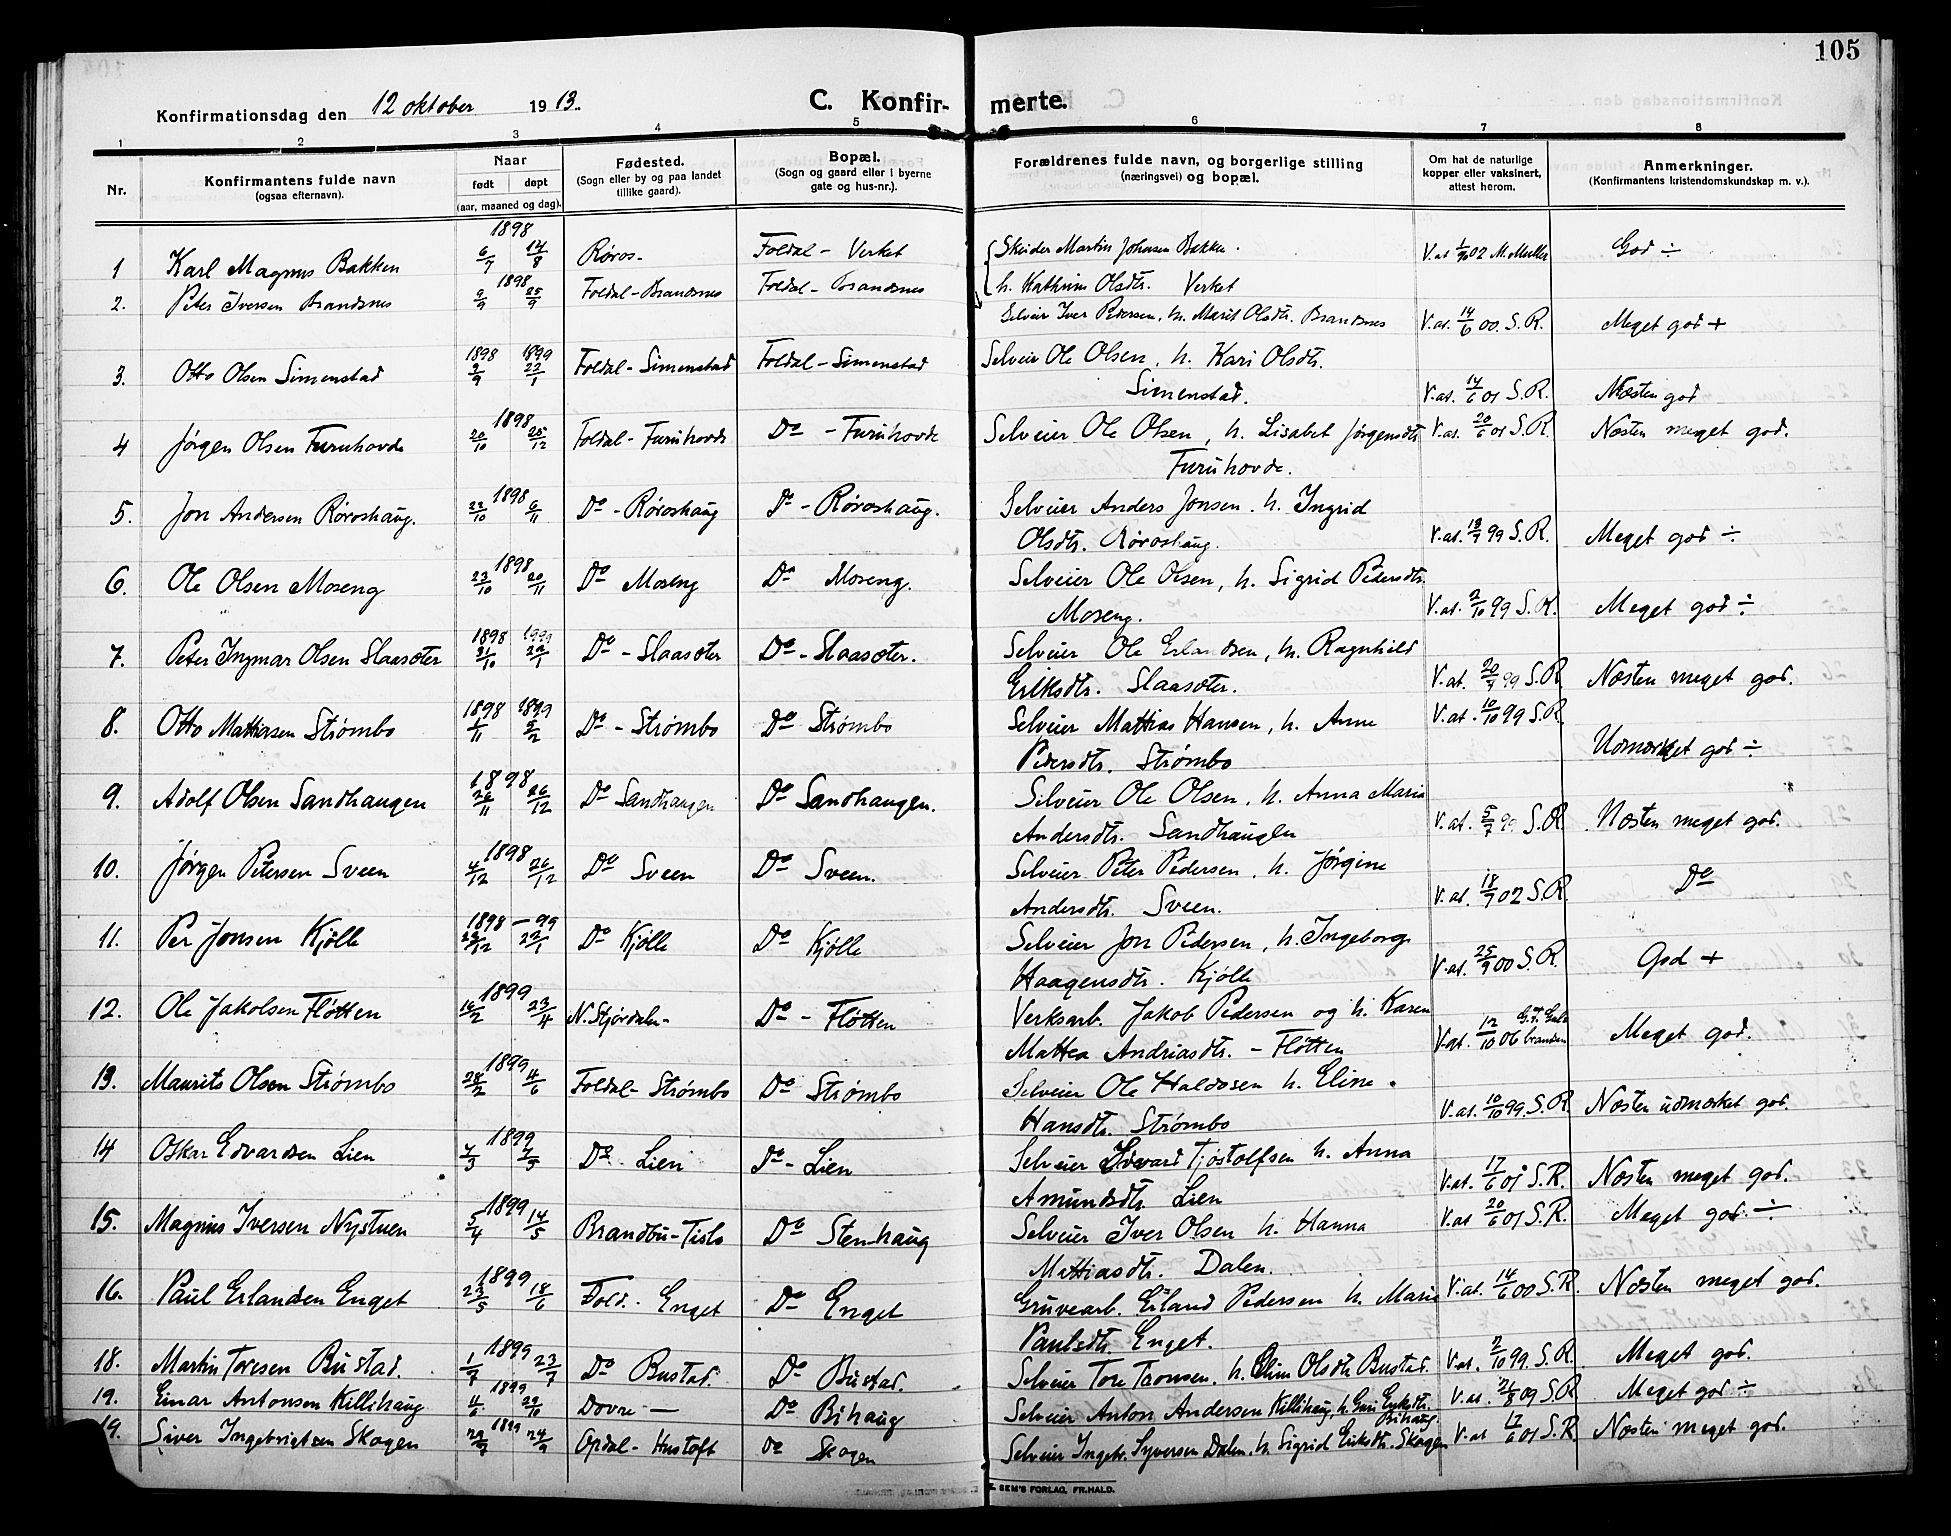 105
Konfirmationsdag den 12 oktober 1913.
C. Konfirmerte.
1 2 3 4 5 6 7 8
Nr.
Konfirmantens fulde navn
(ogsaa efternavn).
Naar
født døpt
(aar, maaned og dag).
Fødested.
(Sogn eller by og paa landet
tillike gaard).
Bopæl.
(Sogn og gaard eller i byerne
gate og hus-nr.).
Forældrenes fulde navn, og borgerlige stilling
(næringsvei) og bopæl.
Om hat de naturlige
kopper eller vaksinert,
attest herom.
Anmerkninger.
(Konfirmantens kristendomskundskap m. v.).
1 Karl Magnus Bakken 1898 6/7 14/8 Røros- Foldal - Verket Skeider Martin Johnsen Bakken. V. at 1/90 02 M. Muller God ÷
h. Kathrine Olsdtr. Verket
2. Peter Iversen Brandsnes 1898 9/9 25/9 Foldal-Brandsnes Foldal-Brandsnes Selveier Iver Pedersen, h. Marit Olsdtr. Brandsnes V. at. 14/6 00. S. R. Meget god +
3. Otto Olsen Simenstad 1898 2/9 1899 22/1 Foldal-Simenstad Foldal-Simenstad Selveier Ole Olsen, h. Kari Olsdtr.
Simenstad. V. at. 14/6 01 S. R. Næsten god
4 Jørgen Olsen Furuhovde 1898 20/10 25/12 Foldal-Furuhovde Do - Furuhovde Selveier Ole Olsen, h. Lisabet Jørgensdtr V. at. 20/6 01 S. R. Næsten meget god.
Furuhovde.
5. Jon Andersen Røroshaug. 1898 22/10 6/11 Do - Røroshaug Do - Røroshaug. Selveier Anders Jonsen. h. Ingrid
Olsdtr. Røroshaug. V. at. 18/9 99 S. R. Meget god ÷
6. Ole Olsen Moseng 1898 23/10 20/11 Do Moseng Do Moseng. Selveier Ole Olsen, h. Sigrid Pedersdtr.
Moseng. V. at. 2/10 99 S. R. Meget god ÷
7. Peter Ingmar Olsen Slaasæter 1898 31/10 1899 22/1 Do - Slaasæter Do - Slaasæter. Selveier Ole Erlandsen, h. Ragnhild
Eriksdtr. Slaasæter. V. at. 20/9 99 S. R. Næsten meget god.
8. Otto Mathiasen Strømbo 1898 1/11 1899 5/2 Do - Strømbo Do Strømbo Selveier Mattias Hansen, h. Anne V. at. 10/10 99 S. R.
Pedersdtr. Strømbo Udmærket god ÷
9. Adolf Olsen Sandhaugen 1898 26/11 26/12 Do Sandhaugen Do Sandhaugen. Selveier Ole Olsen, h. Anna Maria
Andersdtr. Sandhaugen V. at. 5/7 99 S. R. Næsten meget god.
10. Jørgen Petersen Sveen 1898 4/12 26/12 Do Sveen Do Sveen. Selveier Peter Pedersen, h. Jørgine
Andersdtr. Sveen. V. at. 18/9 02 S. R. Do
11. Per Jonsen Kjølle 1898 - 99 22/1 Do Kjølle Do Kjølle Selveier Jon Pedersen, h. Ingeborg
Haagensdtr. Kjølle V. at. 25/9 00 S. R. God +
12. Ole Jakobsen Fløtten 1899 16/2 23/4 N. Stjørdalen- Do - Fløtten Verksarb. Jakob Pedersen og h. Karen
Mattea Andriasdtr. - Fløtten V. at. 12/10 06 Meget god.
13. Maurits Olsen Strømbo 1899 28/2 4/6 Foldal-Strømbo Do Strømbo Selveier Ole Haldosen h. Eline
Hansdtr. Strømbo V. at. 10/10 99 S. R. Næsten udmærket god.
14 Oskar Edvardsen Lien 1899 Do - Lien Do - Lien Selveier Edvard Tjøstolfsen h. Anna
Amundsdtr. Lien V. at. 17/6 01 S. R. Næsten meget god.
15. Magnus Iversen Nystuen 1899 5/4 14/5 Brandbu-Tislo Do Stenhaug Selveier Iver Olsen h. Hanna V. at 20/6 01 S. R. Meget god. ÷
Mattiasdtr. Dalen.
16. Paul Erlandsen Enget 1899 23/5 18/6 Fold. Enget Do Enget Gruvearb. Erland Pedersen h. Marie V. at. 14/6 00 S. R. Næsten meget god.
Paulsdtr. Enget.
18. Martin Toresen Bustad. 1899 1/7 23/7 Do Bustad. Do Bustad. Selveier Tore Tronsen, h. Eline Olsdtr. Bustad. V. at. 2/10 99. S. R. Meget god.
19. Einar Antonsen Killihaug 1899 11/6 22/10 Dovre — Do Bihaug Selveier Anton Andersen Killihaug, h. Guri Eriksdtr. Bihaug. V. at. 21/8 09 S. R. Meget god ÷
19. Siver Ingebrigtsen Skogen 1899 24/9 Opdal - Hustoft Do Skogen Selveier Ingebr. Syversen Dalen, h. Sigrid Eriksdtr. Skogen V. at 17/6 01 S. R. Næsten meget god.
SEM'S FORLAG, FR.HALD.